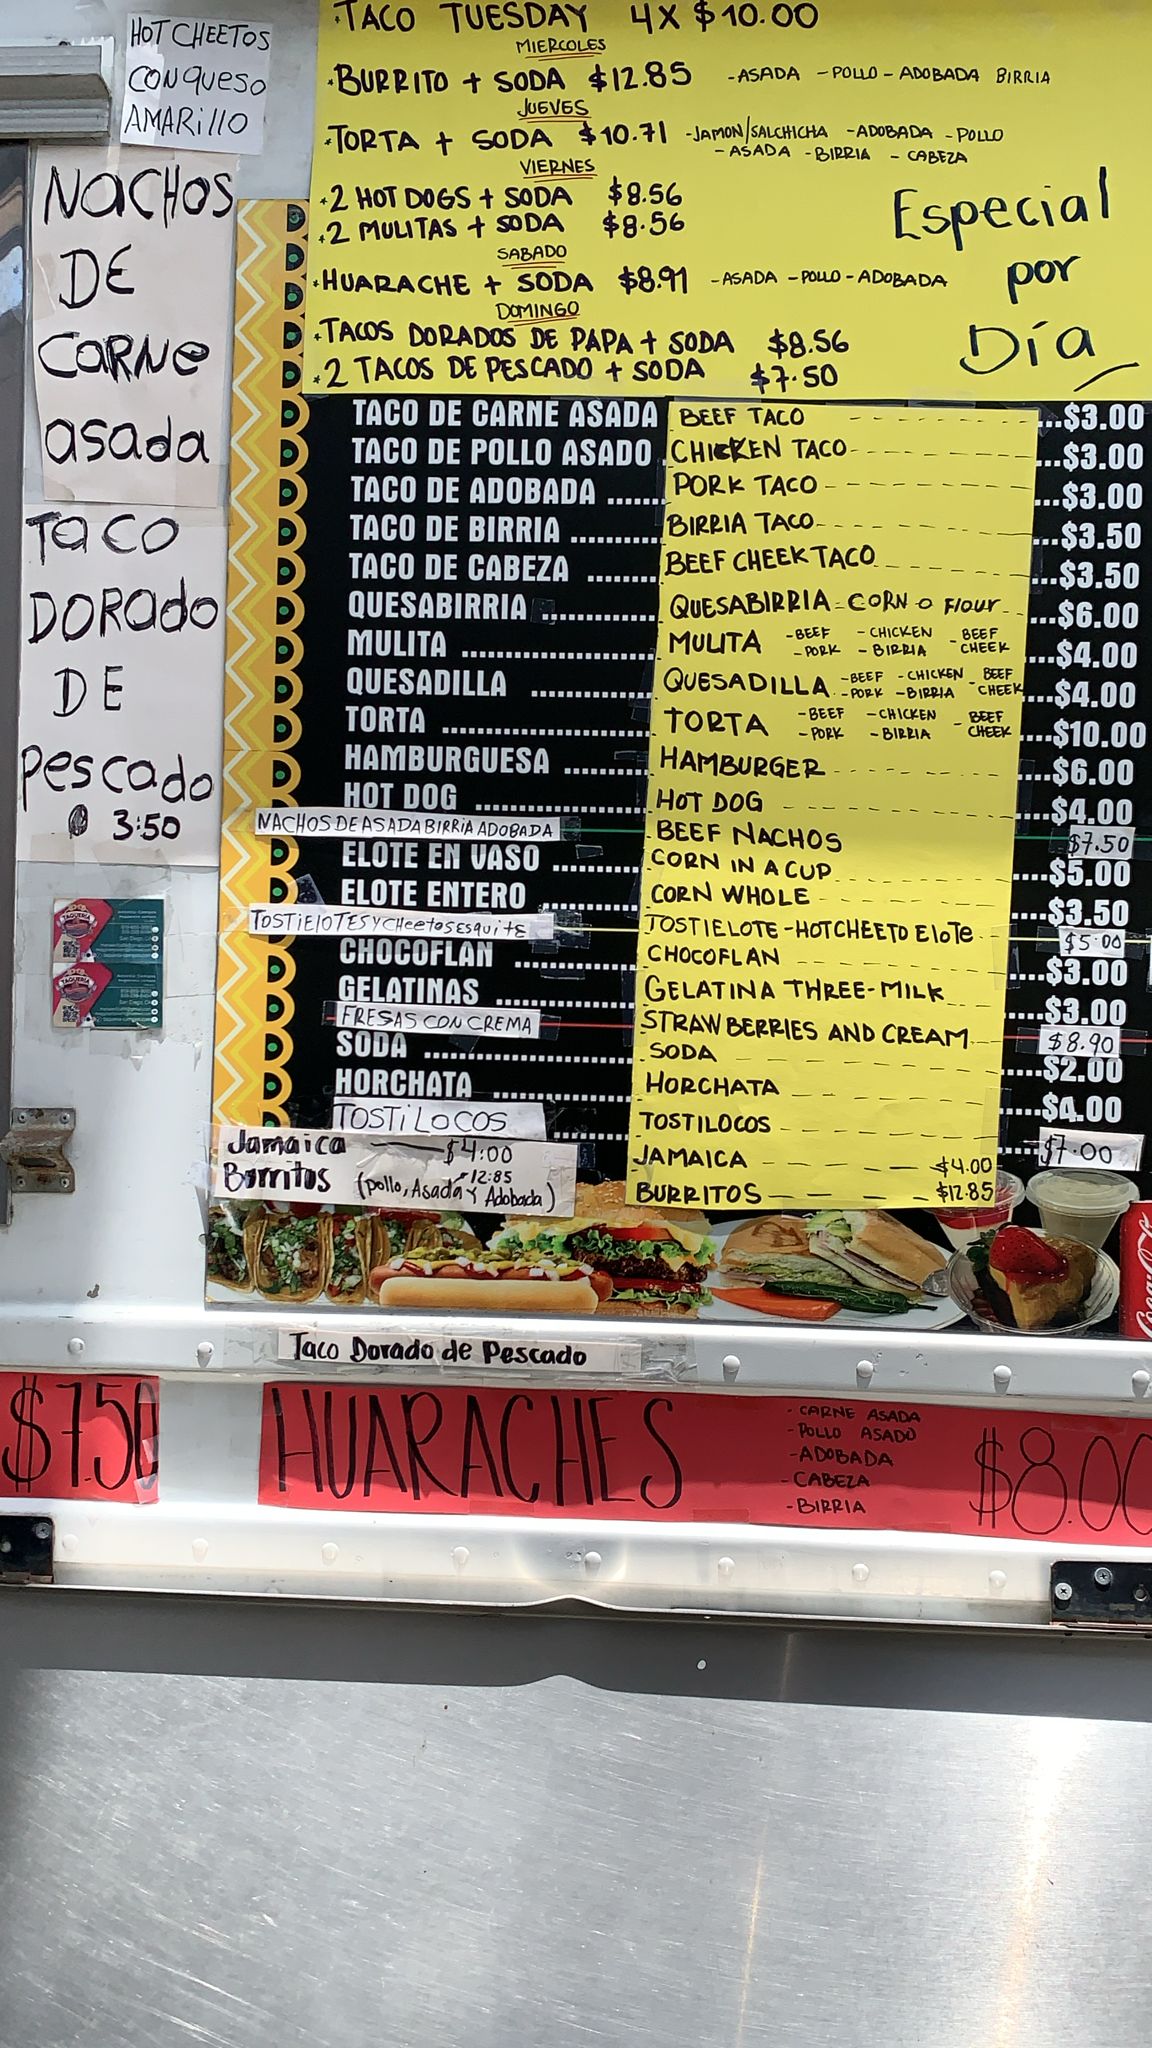 HOT CHEETOS
CON QUESO
AMARILLO
NACHOS
DE
CARNE
asada
TACO
DORADO
DE
PESCADO
@ 3:50
TAQUERIA
TAQUERIA
·TACO TUESDAY 4X $10.00
MIERCOLES
·BURRITO + SODA $12.85 -ASADA -POLLO -ADOBADA BIRRIA
JUEVES
·TORTA + SODA $10.71 -JAMON/SALCHICHA -ADOBADA -POLLO
-ASADA -BIRRIA -CABEZA
VIERNES
·2 HOT DOGS + SODA $8.56
·2 MULITAS + SODA $8.56
SABADO
·HUARACHE + SODA $8.91 -ASADA -POLLO -ADOBADA
DOMINGO
·TACOS DORADOS DE PAPA + SODA $8.56
·2 TACOS DE PESCADO + SODA $7.50
Especial
por
Día
TACO DE CARNE ASADA BEEF TACO $3.00
TACO DE POLLO ASADO CHICKEN TACO $3.00
TACO DE ADOBADA PORK TACO $3.00
TACO DE BIRRIA BIRRIA TACO $3.50
TACO DE CABEZA BEEF CHEEK TACO $3.50
QUESABIRRIA QUESABIRRIA - CORN O Flour $6.00
MULITA MULITA -BEEF -CHICKEN -BEEF CHEEK -PORK -BIRRIA $4.00
QUESADILLA QUESADILLA -BEEF -CHICKEN -BEEF CHEEK -PORK -BIRRIA $4.00
TORTA TORTA -BEEF -CHICKEN -BEEF CHEEK -PORK -BIRRIA $10.00
HAMBURGUESA HAMBURGER $6.00
HOT DOG HOT DOG $4.00
NACHOS DE ASADA BIRRIA ADOBADA BEEF NACHOS $7.50
ELOTE EN VASO CORN IN A CUP $5.00
ELOTE ENTERO CORN WHOLE $3.50
TOSTIELOTES Y CHeetos Esquite TOSTIELOTE-HOTCHEETO Elote $5.00
CHOCOFLAN CHOCOFLAN $3.00
GELATINAS GELATINA THREE-MILK $3.00
FRESAS CON CREMA STRAWBERRIES AND CREAM $8.90
SODA SODA $2.00
HORCHATA HORCHATA $4.00
TOSTILOCOS TOSTILOCOS $7.00
Jamaica $4.00 JAMAICA $4.00
Burritos 12:85 (pollo, Asada y Adobada) BURRITOS $12.85
Coca-Cola
Taco Dorado de Pescado
$7.50
HUARACHES
- CARNE ASADA
- POLLO ASADO
-ADOBADA
-CABEZA
-BIRRIA
$8.00